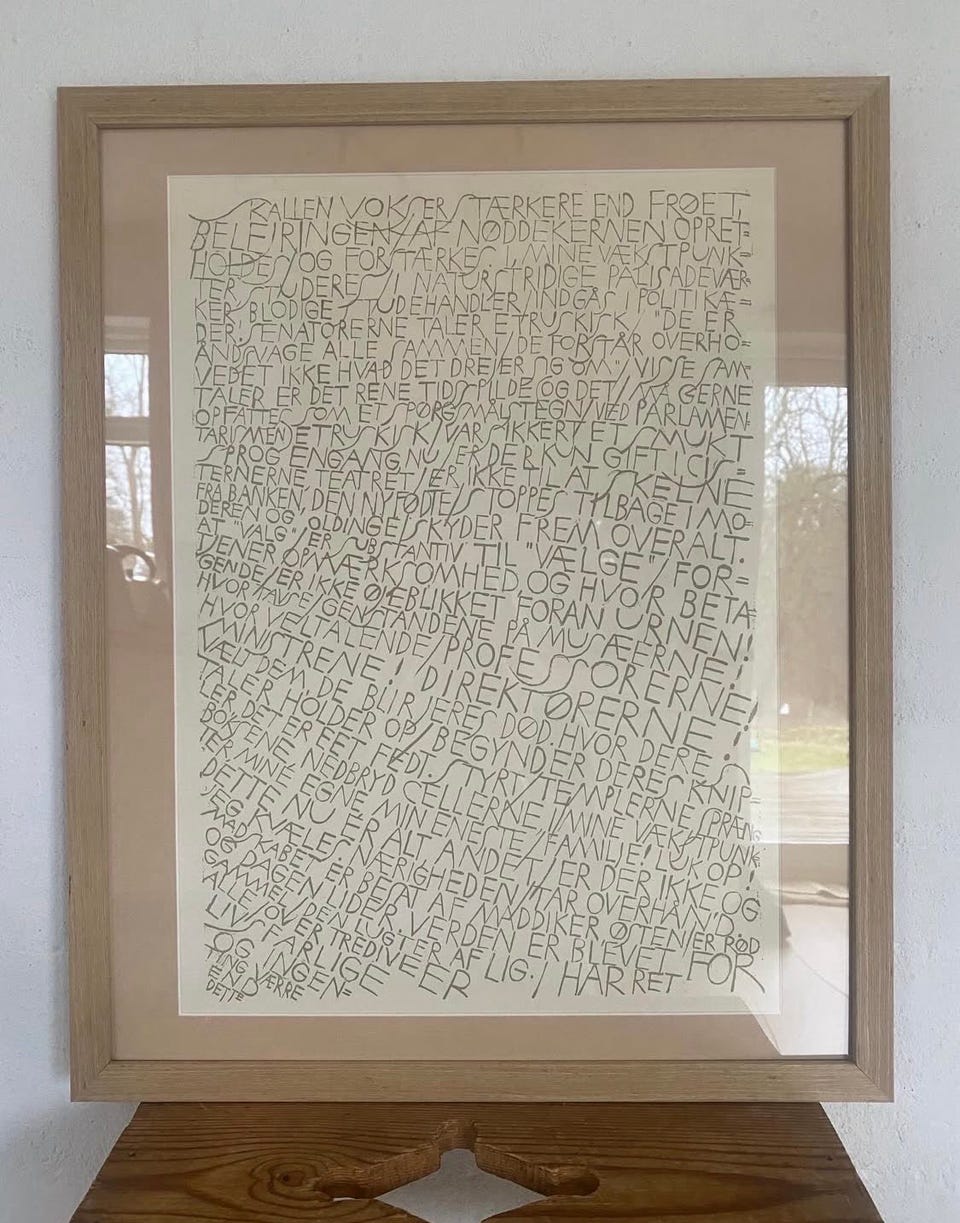 SKALLEN VOKSER STÆRKERE END FRØET,
BELEJRINGEN/AF NØDDEKERNEN OPRET=
HOLDES/OG FORSTÆRKES I MINE VÆKSTPUNK=
TER STUDERES/NATURSTRIDIGE PALISADEVÆR=
KER. BLODIGE STUDEHANDLER/INDGÅS I POLITIKÆ=
DER. SENATORERNE TALER ETRUSKISK/"DE ER
ÅNDSVAGE ALLE SAMMEN/DE FORSTÅR OVERHO=
VEDET IKKE HVAD DET DREJER SIG OM" VISSE SAM=
TALER ER DET RENE TIDSSPILDE OG DET/MÅ GERNE
OPFATTES SOM ET SPØRGSMÅLSTEGN/VED PARLAMEN=
TARISMEN ETRUSKISK/VAR SIKKERT ET SMUKT
SPROG ENGANG. NU/ER DER KUN GIFT I CIS=
TERNERNE, TEATRET/ER IKKE TIL AT SKELNE
FRA BANKEN, DEN NYFØDTE/STOPPES TILBAGE I MO=
DEREN OG/OLDINGE/SKYDER FREM OVERALT.
AT "VALG"/ER SUBSTANTIV TIL "VÆLGE"/FOR=
TJENER OPMÆRKSOMHED OG HVOR BETA=
GENDE/ER IKKE ØJEBLIKKET FORAN URNEN!
HVOR TAVSE/GENSTANDENE PÅ MUSÆERNE!
HVOR VELTALENDE/PROFESSORERNE!
MINISTRENE!/DIREKTØRERNE!
VÆLT DEM, DE BLIR JERES DØD. HVOR DERES
TALER HOLDER OP/BEGYNDER DERES KNIP=
LER DET ER EET FED. STYRT/TEMPLERNE SPRÆNG
BOKSENE NEDBRYD CELLERNE/MINE VÆKSTPUNK=
TER MINE EGNE MIN ENESTE/FAMILIE! LUK OP!
DETTE NU ER ALT ANDET/ER DER IKKE OG
JEG KVÆLES. NÆRIGHEDEN/TAR OVERHÅND.
MADSKABET ER BESAT AF MADDIKER ØSTEN/ER RØD
OG DAGEN LIDER. VERDEN ER BLEVET FOR
GAMMEL/DEN LUGTER AF LIG./HAR RET
ALLE OVER TREDIVE ER
LIVSFARLIGE
OG INGEN=
TING VÆRRE
END
DETTE